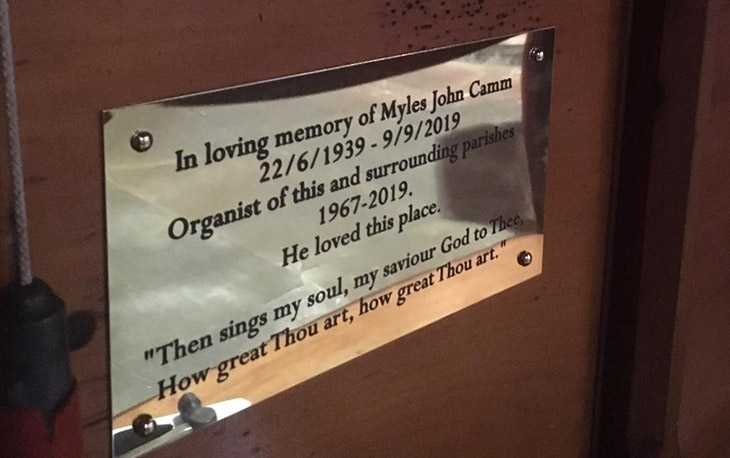 In loving memory of Myles John Camm
22/6/1939 - 9/9/2019
Organist of this and surrounding parishes
1967-2019.
He loved this place.
"Then sings my soul, my saviour God to Thee,
How great Thou art, how great Thou art."